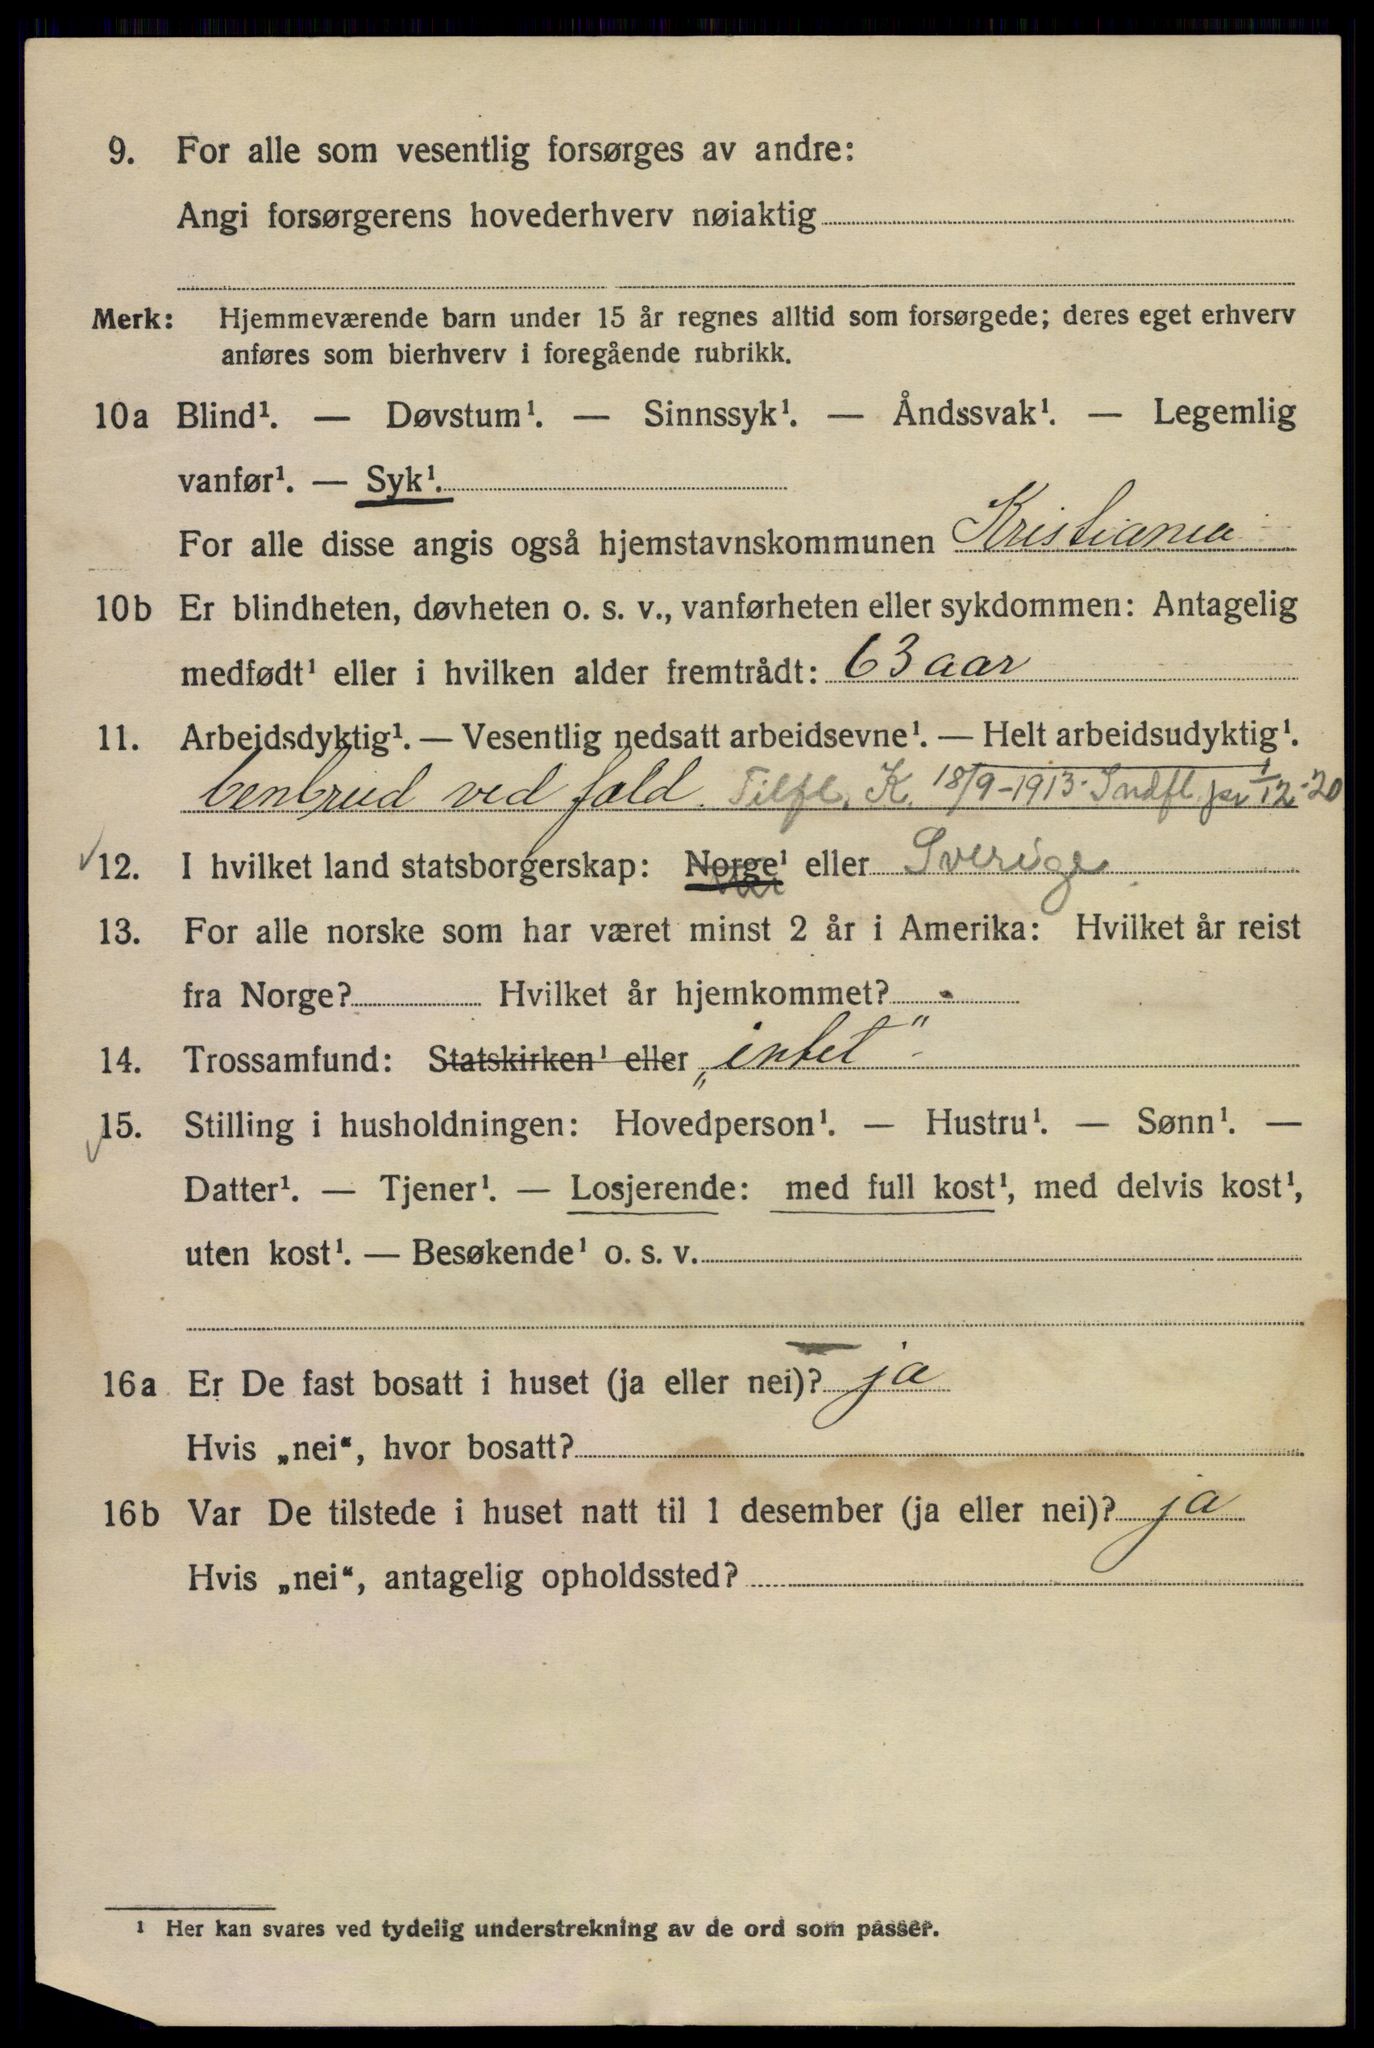 9. For alle som vesentlig forsørges av andre:
Angi forsørgerens hovederhverv nøiaktig
Merk: Hjemmeværende barn under 15 år regnes alltid som forsørgede; deres eget erhverv
anføres som bierhverv i foregående rubrikk.
10a Blind¹. — Døvstum¹. — Sinnssyk¹. — Åndssvak¹. — Legemlig
vanfør¹. — Syk¹.
For alle disse angis også hjemstavnskommunen Kristiania
10b Er blindheten, døvheten o. s. v., vanførheten eller sykdommen: Antagelig
medfødt¹ eller i hvilken alder fremtrådt: 63 aar
11. Arbeidsdyktig¹. — Vesentlig nedsatt arbeidsevne¹. — Helt arbeidsudyktig¹.
benbrud ved fald. Tilfl. K. 18/9-1913. Indfl. pr 1/12-20
12. I hvilket land statsborgerskap: Norge¹ eller Sverige
13. For alle norske som har været minst 2 år i Amerika: Hvilket år reist
fra Norge? Hvilket år hjemkommet?
14. Trossamfund: Statskirken¹ eller „intet"
15. Stilling i husholdningen: Hovedperson¹. — Hustru¹. — Sønn¹. —
Datter¹. — Tjener¹. — Losjerende: med full kost¹, med delvis kost¹,
uten kost¹. — Besøkende¹ o. s. v.
16a Er De fast bosatt i huset (ja eller nei)? ja
Hvis „nei“, hvor bosatt?
16b Var De tilstede i huset natt til 1 desember (ja eller nei)? ja
Hvis „nei“, antagelig opholdssted?
¹ Her kan svares ved tydelig understrekning av de ord som passer.